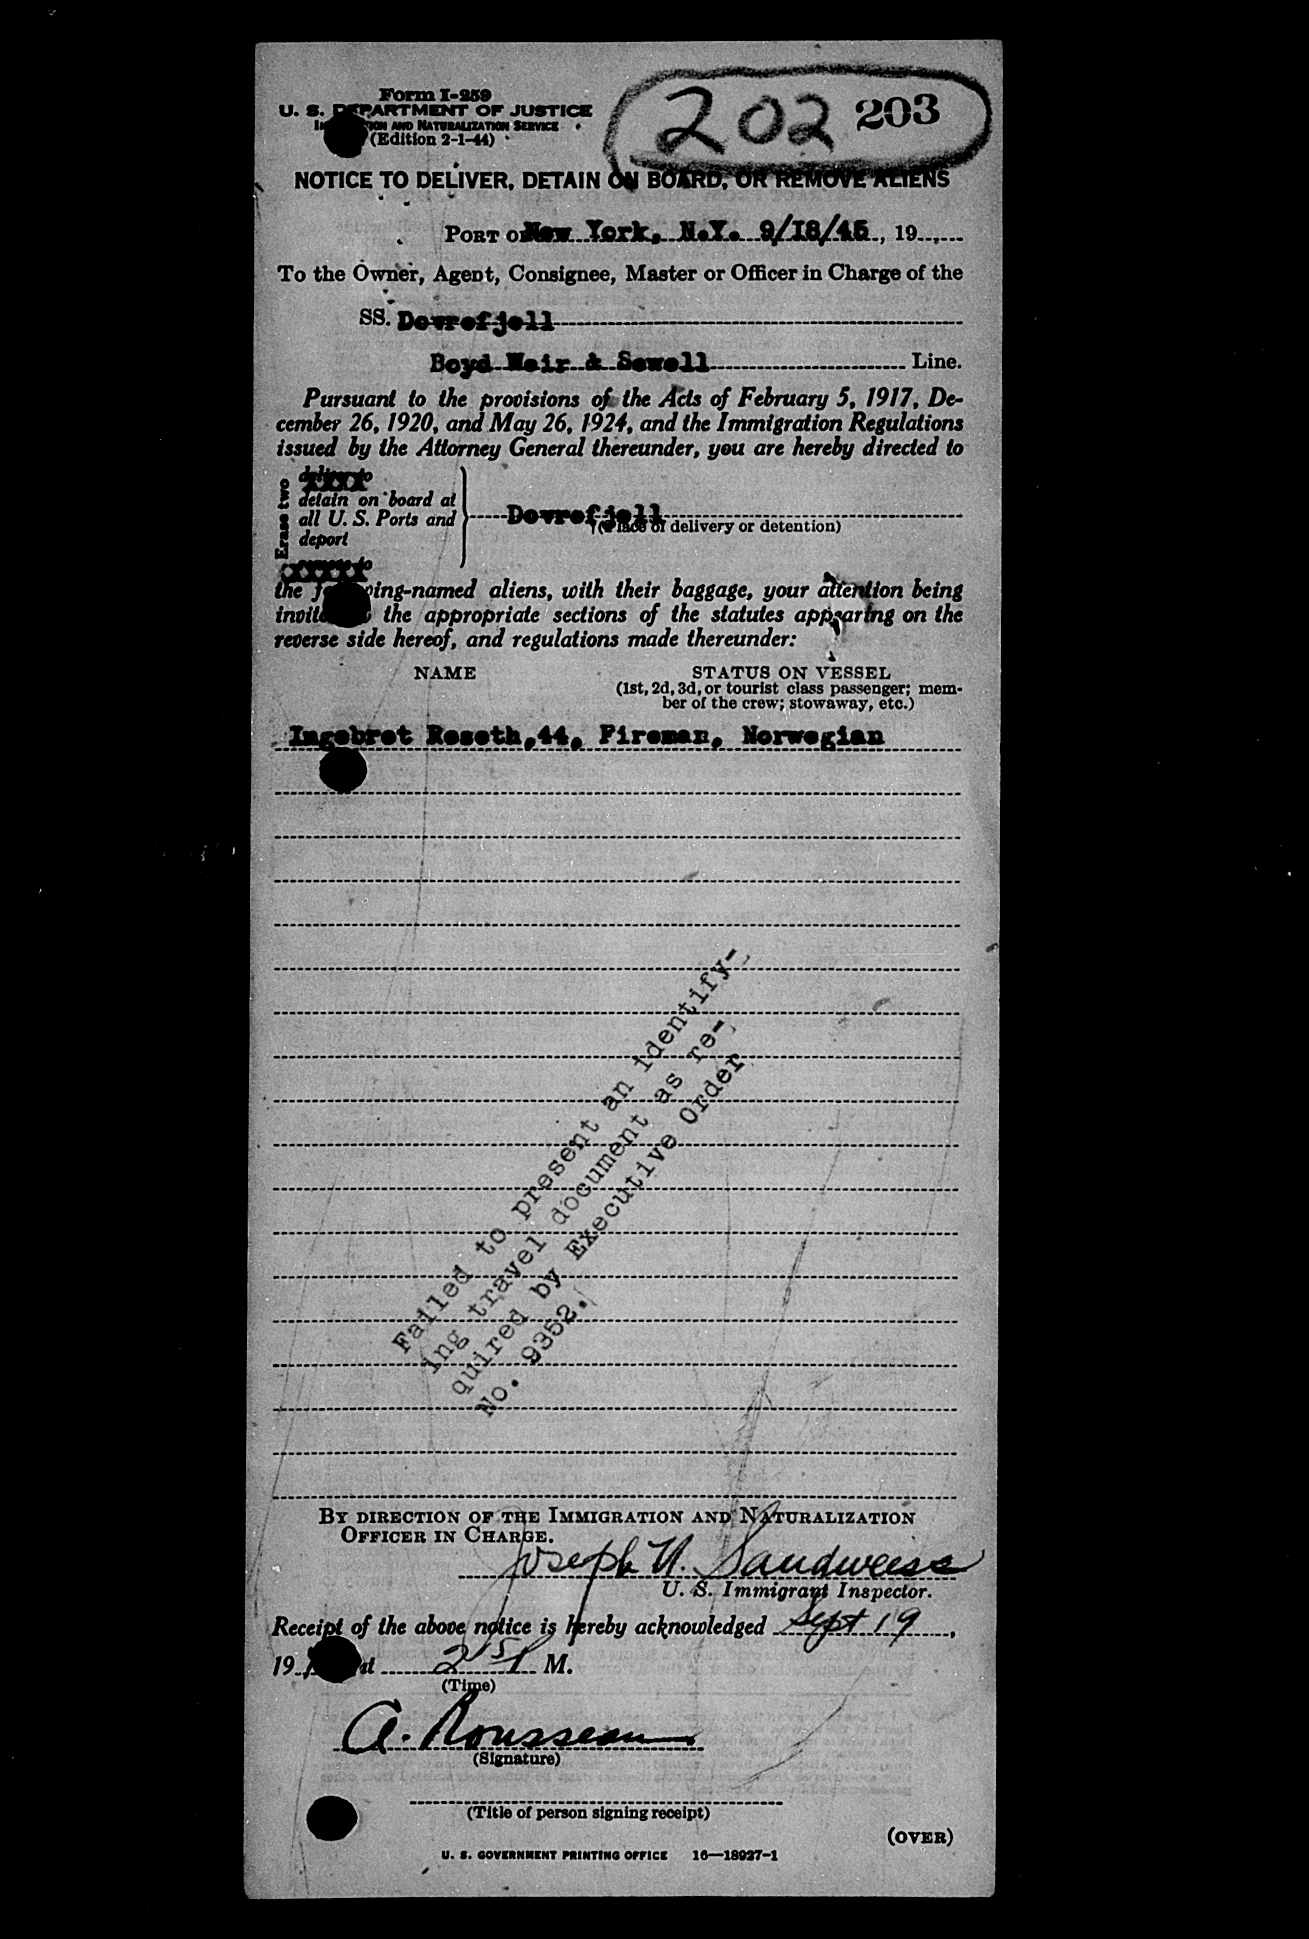 Form I-259
U. S. DEPARTMENT OF JUSTICE
IMMIGRATION AND NATURALIZATION SERVICE
(Edition 2-1-44)
202 203
NOTICE TO DELIVER, DETAIN ON BOARD, OR REMOVE ALIENS
PORT OF New York, N.Y. 9/18/45, 19
To the Owner, Agent, Consignee, Master or Officer in Charge of the
SS. Dovrefjell
Boyd Weir & Sewell Line.
Pursuant to the provisions of the Acts of February 5, 1917, De-
cember 26, 1920, and May 26, 1924, and the Immigration Regulations
issued by the Attorney General thereunder, you are hereby directed to
Erase two
deliver to
detain on board at
all U. S. Ports and
deport
Dovrefjell
(Place of delivery or detention)
remove to
the following-named aliens, with their baggage, your attention being
invited to the appropriate sections of the statutes appearing on the
reverse side hereof, and regulations made thereunder:
NAME STATUS ON VESSEL
(1st, 2d, 3d, or tourist class passenger; mem-
ber of the crew; stowaway, etc.)
Ingebret Reseth, 44, Fireman, Norwegian
Failed to present an identify-
ing travel document as re-
quired by Executive Order
No. 9352.
BY DIRECTION OF THE IMMIGRATION AND NATURALIZATION
OFFICER IN CHARGE.
Joseph N. Sandweiss
U. S. Immigrant Inspector.
Receipt of the above notice is hereby acknowledged Sept 19,
19 at 2 15 P M.
(Time)
A. Rousseau
(Signature)
(Title of person signing receipt)
(OVER)
U. S. GOVERNMENT PRINTING OFFICE 16—18927-1